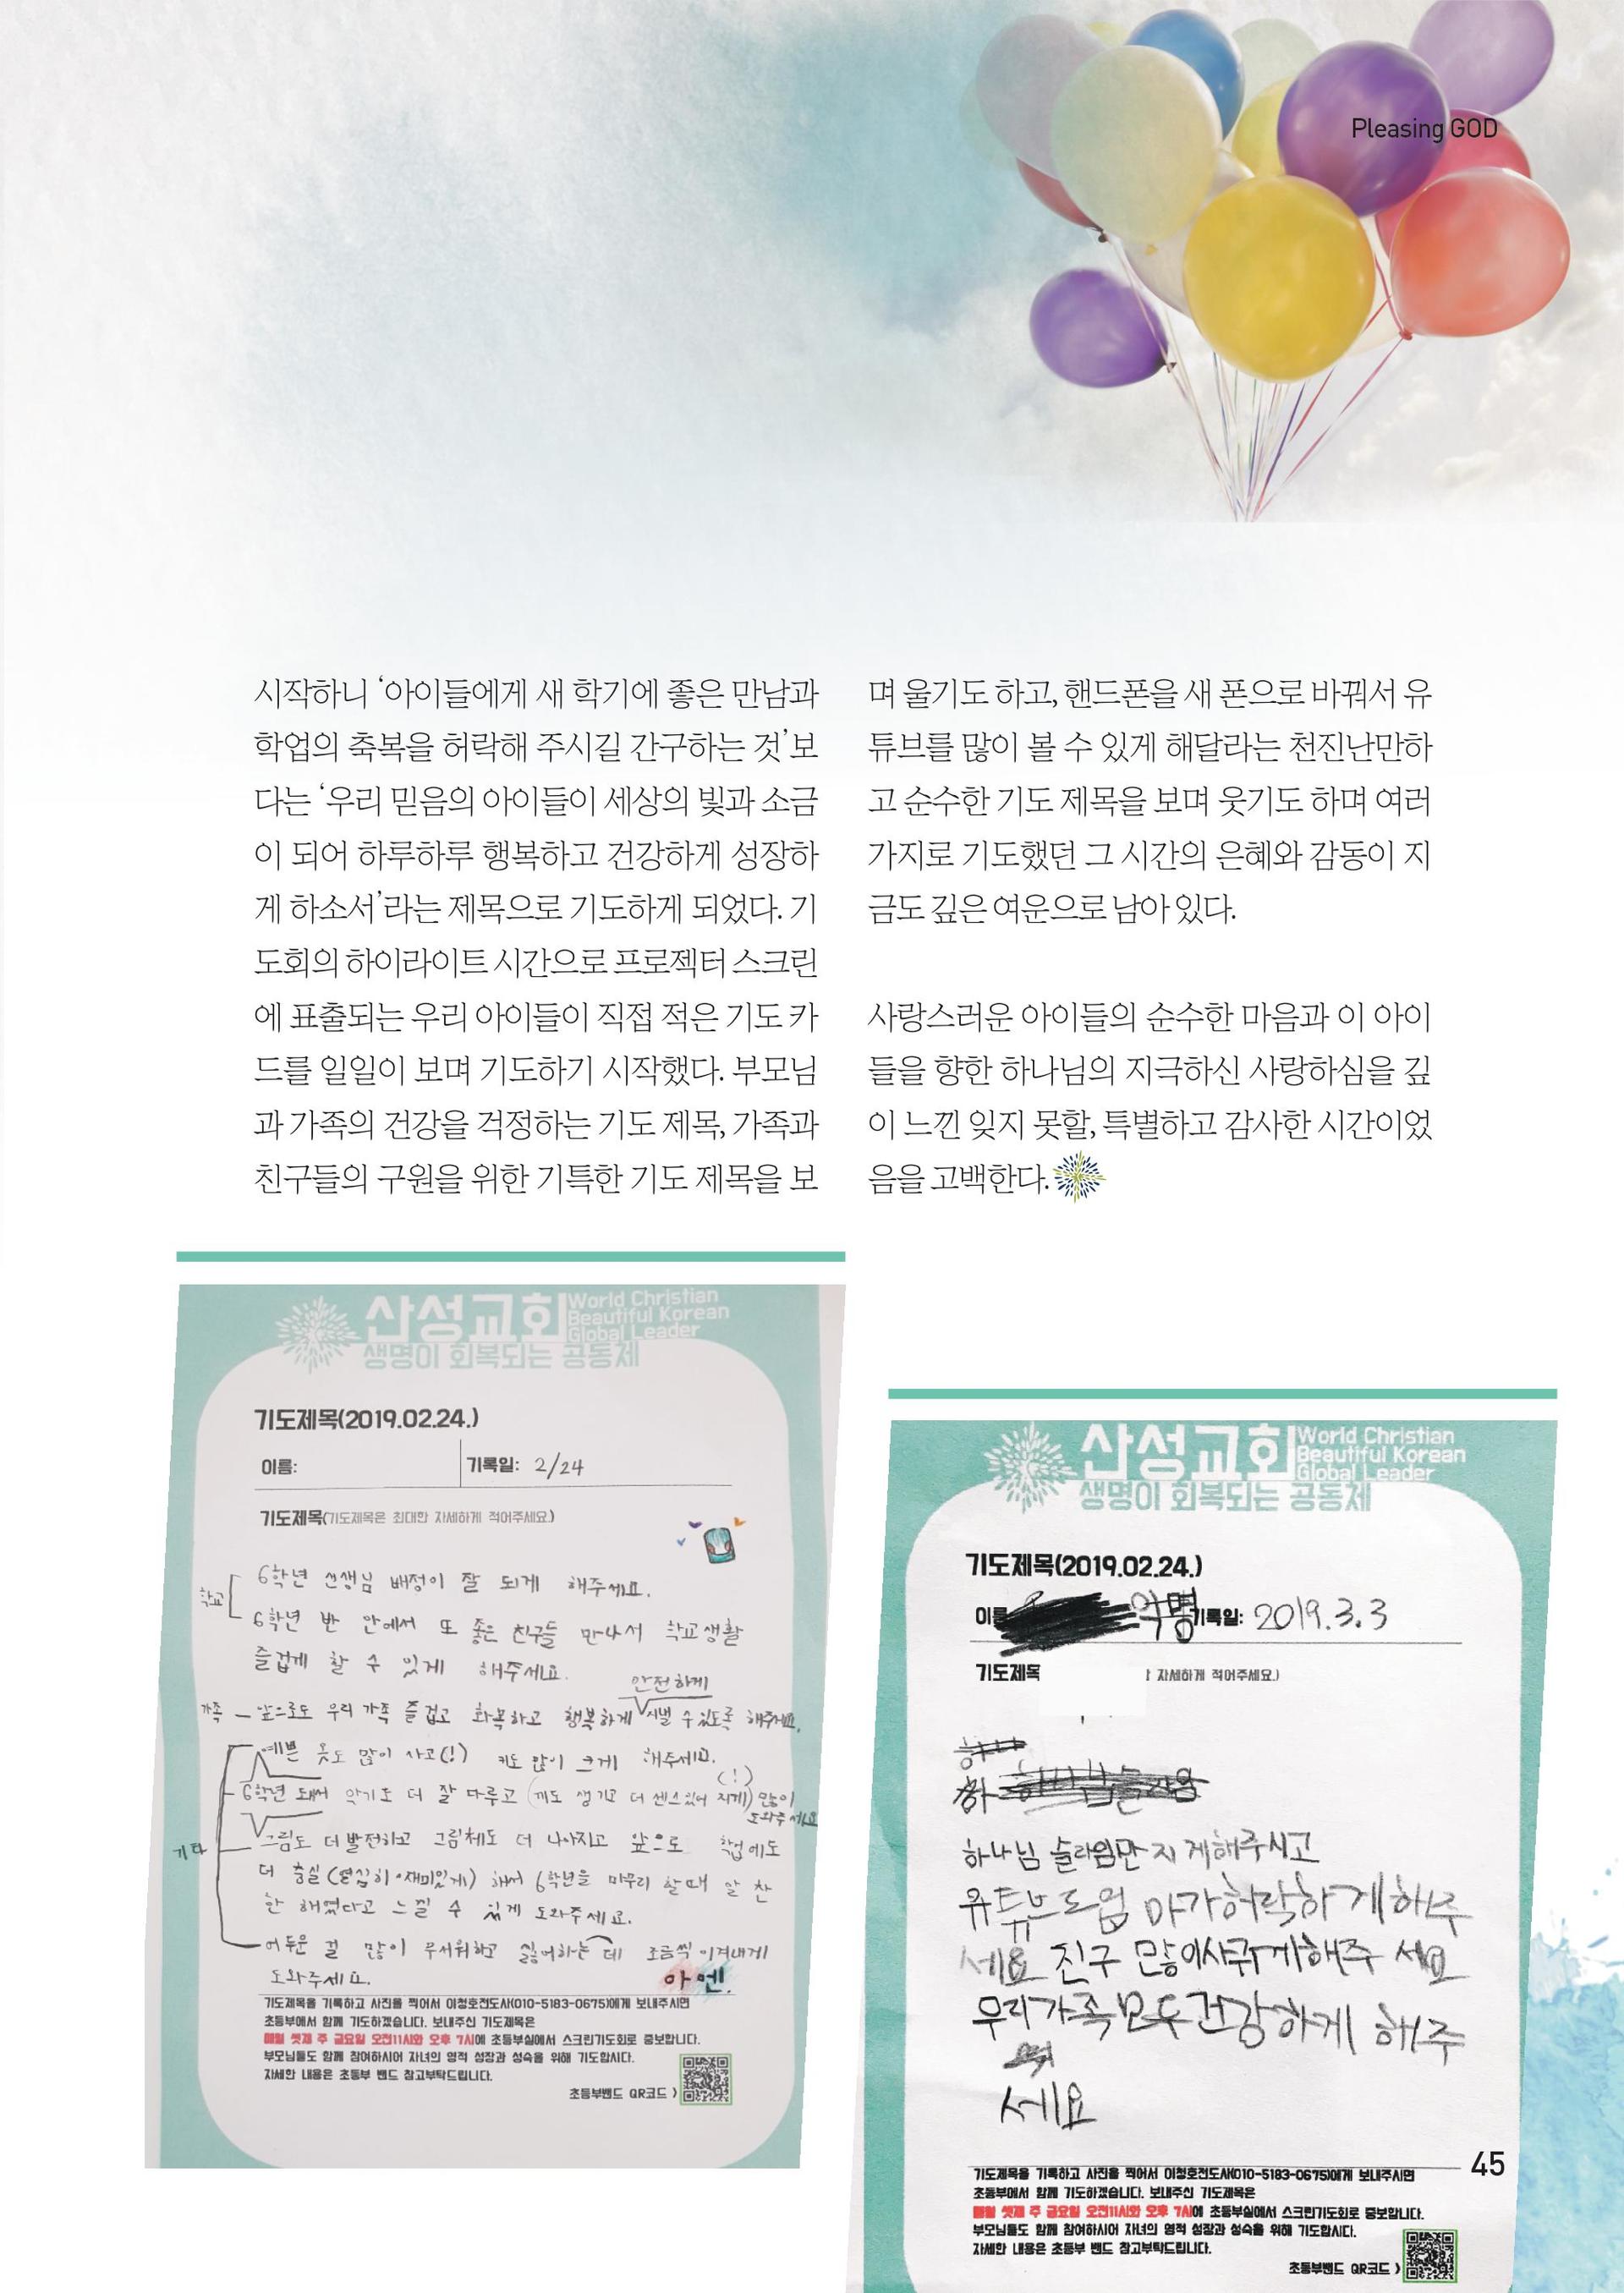 Pleasing GOD
시작하니 ‘아이들에게 새 학기에 좋은 만남과
학업의 축복을 허락해 주시길 간구하는 것’보
다는 ‘우리 믿음의 아이들이 세상의 빛과 소금
이 되어 하루하루 행복하고 건강하게 성장하
게 하소서’라는 제목으로 기도하게 되었다. 기
도회의 하이라이트 시간으로 프로젝터 스크린
에 표출되는 우리 아이들이 직접 적은 기도 카
드를 일일이 보며 기도하기 시작했다. 부모님
과 가족의 건강을 걱정하는 기도 제목, 가족과
친구들의 구원을 위한 기특한 기도 제목을 보
며 울기도 하고, 핸드폰을 새 폰으로 바꿔서 유
튜브를 많이 볼 수 있게 해달라는 천진난만하
고 순수한 기도 제목을 보며 웃기도 하며 여러
가지로 기도했던 그 시간의 은혜와 감동이 지
금도 깊은 여운으로 남아 있다.
사랑스러운 아이들의 순수한 마음과 이 아이
들을 향한 하나님의 지극하신 사랑하심을 깊
이 느낀 잊지 못할, 특별하고 감사한 시간이었
음을 고백한다.
산성교회
World Christian
Beautiful Korean
Global Leader
생명이 회복되는 공동체
기도제목(2019.02.24.)
이름:
기록일: 2/24
기도제목(기도제목은 최대한 자세하게 적어주세요.)
학교
6학년 선생님 배정이 잘 되게 해주세요.
6학년 반 안에서 또 좋은 친구들 만나서 학교생활
즐겁게 할 수 있게 해주세요.
안전하게
가족 - 앞으로도 우리 가족 즐겁고 화목하고 행복하게 지낼 수 있도록 해주세요.
기타
예쁜 옷도 많이 사고(!) 키도 많이 크게 해주세요.
(!)
6학년 돼서 악기도 더 잘 다루고 (끼도 생기고 더 센스있어 지게) 많이
도와주세요
그림도 더 발전하고 그림체도 더 나아지고 앞으로 학업에도
더 충실 (열심히·재미있게) 해서 6학년을 마무리 할 때 알 찬
한 해였다고 느낄 수 있게 도와주세요.
어두운 걸 많이 무서워하고 싫어하는데 조금씩 이겨내게
도와주세요.
아멘.
기도제목을 기록하고 사진을 찍어서 이청호전도사(010-5183-0675)에게 보내주시면
초등부에서 함께 기도하겠습니다. 보내주신 기도제목은
매월 셋째 주 금요일 오전11시와 오후 7시에 초등부실에서 스크린기도회로 중보합니다.
부모님들도 함께 참여하시어 자녀의 영적 성장과 성숙을 위해 기도합시다.
자세한 내용은 초등부 밴드 참고부탁드립니다.
초등부밴드 QR코드 >
산성교회
World Christian
Beautiful Korean
Global Leader
생명이 회복되는 공동체
기도제목(2019.02.24.)
익명
기록일: 2019.3.3
기도제목
자세하게 적어주세요.)
하나님 슬라임만지게해주시고
유튜브도엄마가허락하게해주
세요 친구 많이사귀게해주세요
우리가족모두건강하게 해주
세요
기도제목을 기록하고 사진을 찍어서 이청호전도사(010-5183-0675)에게 보내주시면
초등부에서 함께 기도하겠습니다. 보내주신 기도제목은
매월 셋째 주 금요일 오전11시와 오후 7시에 초등부실에서 스크린기도회로 중보합니다.
부모님들도 함께 참여하시어 자녀의 영적 성장과 성숙을 위해 기도합시다.
자세한 내용은 초등부 밴드 참고부탁드립니다.
초등부밴드 QR코드 >
45